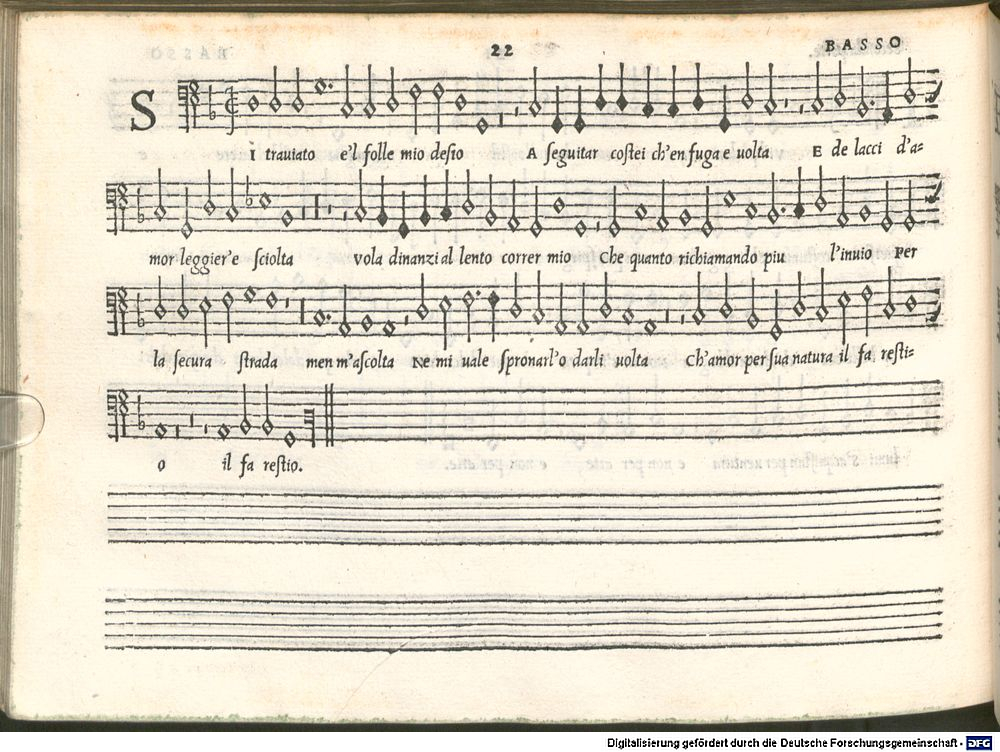 22
BASSO
SI trauiato e'l folle mio desio A seguitar costei ch'en fuga e uolta E de lacci d'a=
mor leggier'e sciolta vola dinanzi al lento correr mio Che quanto richiamando piu l'inuio Per
la secura strada men m'ascolta Ne mi uale spronarl'o darli uolta Ch'amor per sua natura il fa resti=
o il fa restio.
Digitalisierung gefördert durch die Deutsche Forschungsgemeinschaft - DFG